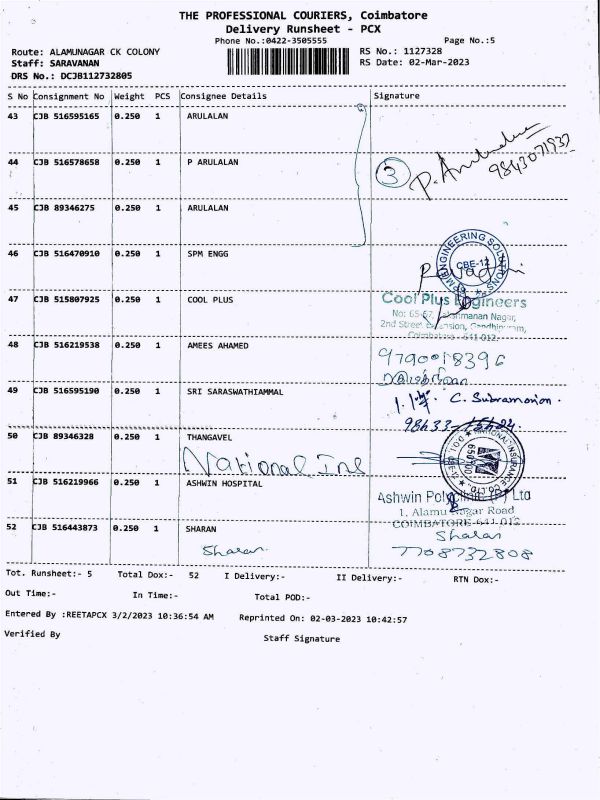 THE PROFESSIONAL COURIERS, Coimbatore
Delivery Runsheet - PCX
Phone No.:0422-3505555
Page No.:5
Route: ALAMUNAGAR CK COLONY
RS No.: 1127328
Staff: SARAVANAN
RS Date: 02-Mar-2023
DRS No.: DCJB112732805
S No Consignment No Weight PCS Consignee Details Signature
43 CJB 516595165 0.250 1 ARULALAN
44 CJB 516578658 0.250 1 P ARULALAN
3 P. Arulalan
9843071937
45 CJB 89346275 0.250 1 ARULALAN
46 CJB 516470910 0.250 1 SPM ENGG
ENGINEERING SOLUTIONS
CBE-12
47 CJB 515807925 0.250 1 COOL PLUS
Cool Plus Engineers
No: 65-67, Lakshmanan Nagar,
2nd Street Extension, Gandhipuram,
Coimbatore - 641 012.
48 CJB 516219538 0.250 1 AMEES AHAMED
9790018396
49 CJB 516595190 0.250 1 SRI SARASWATHIAMMAL
C. Subramanian.
50 CJB 89346328 0.250 1 THANGAVEL
National Ins
NATIONAL INSURANCE CO. LTD
51 CJB 516219966 0.250 1 ASHWIN HOSPITAL
Ashwin Polyclinic (P) Ltd
1, Alamu Nagar Road
COIMBATORE-641 012
52 CJB 516443873 0.250 1 SHARAN
Sharan
Sharan
7708732808
Tot. Runsheet:- 5 Total Dox:- 52 I Delivery:- II Delivery:- RTN Dox:-
Out Time:- In Time:- Total POD:-
Entered By :REETAPCX 3/2/2023 10:36:54 AM Reprinted On: 02-03-2023 10:42:57
Verified By Staff Signature